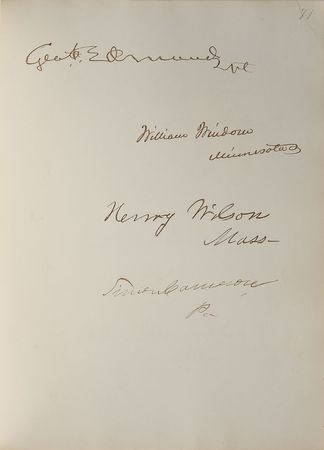 81
Geo. F. Edmunds Vt
William Windom
Minnesota
Henry Wilson
Mass
Simon Cameron
Pa